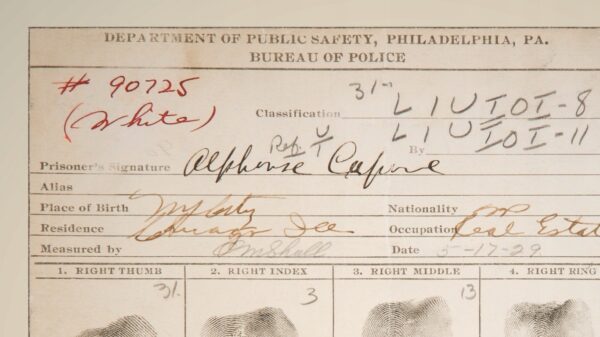 DEPARTMENT OF PUBLIC SAFETY, PHILADELPHIA, PA.
BUREAU OF POLICE
# 90725
(White)
Classification 31 L 1 U I O I - 8
Ref. U L 1 U I O I - 11
T By
Prisoner's Signature Alphonse Capone
Alias
Place of Birth N.Y. City Nationality
Residence Chicago Ill Occupation Real Estat
Measured by Date 5-17-29
1. RIGHT THUMB 2. RIGHT INDEX 3. RIGHT MIDDLE 4. RIGHT RING
31 3 13